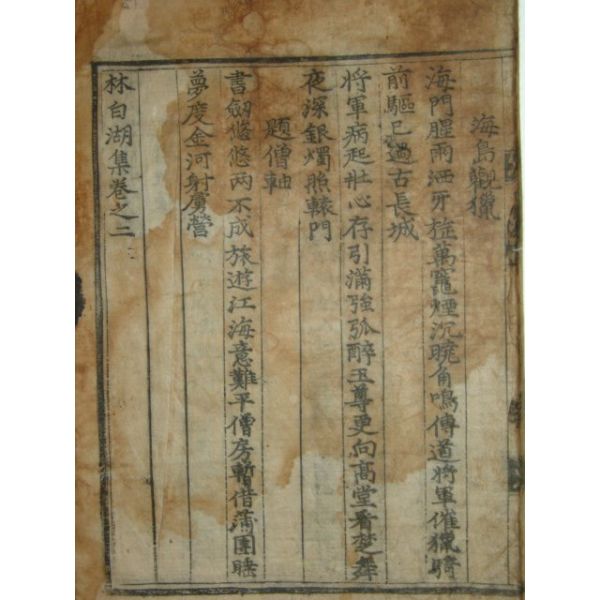 海島觀獵
海門腥雨洒牙旌萬竈煙沉曉角鳴傳道將軍催獵騎
前驅已過古長城
將軍病起壯心存引滿強弧醉玉尊更向高堂看楚舞
夜深銀燭照轅門
題僧軸
書劒悠悠兩不成旅遊江海意難平僧房暫借蒲團睡
夢度金河射虜營
林白湖集卷之二